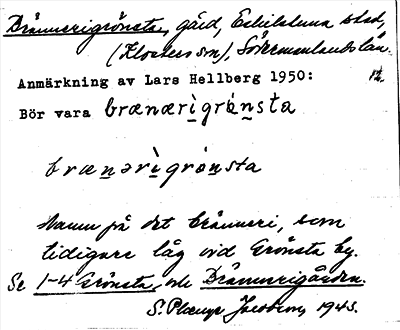 Brännerigrönsta, gård, Eskilstuna stad,
(Klosters sn), Södermanlands län.
Anmärkning av Lars Hellberg 1950:
Bör vara brænæri̱grȯ̀n̲sta
bræn̲ərì̱grön̲sta
Namn på det bränneri, som
tidigare låg vid Grönsta by.
Se 1-4 Grönsta, och Brännerigården.
S. Jacobson, 1943.